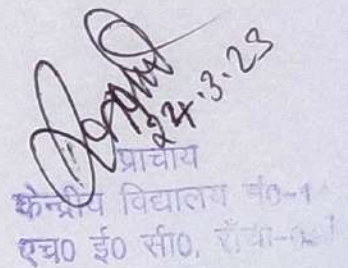 24.3.23
प्राचार्य
केन्द्रीय विद्यालय नं0-1
एच0 ई0 सी0, राँची-